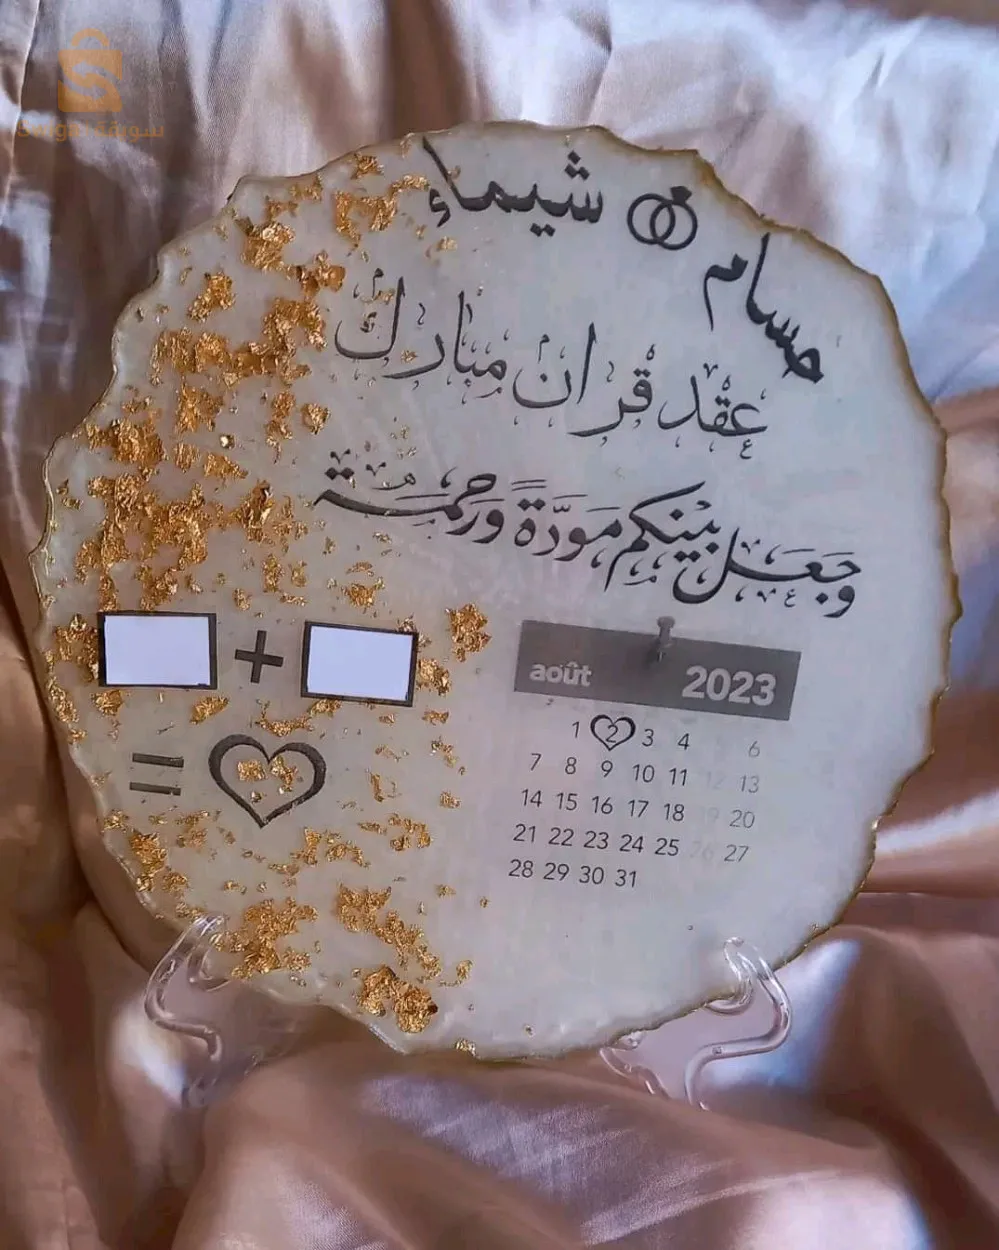 سويقة
حسام شيماء
عقد قران مبارك
وجعل بينكم مودة ورحمة
+
août 2023
1 2 3 4 6
7 8 9 10 11 12 13
14 15 16 17 18 19 20
21 22 23 24 25 26 27
28 29 30 31
=